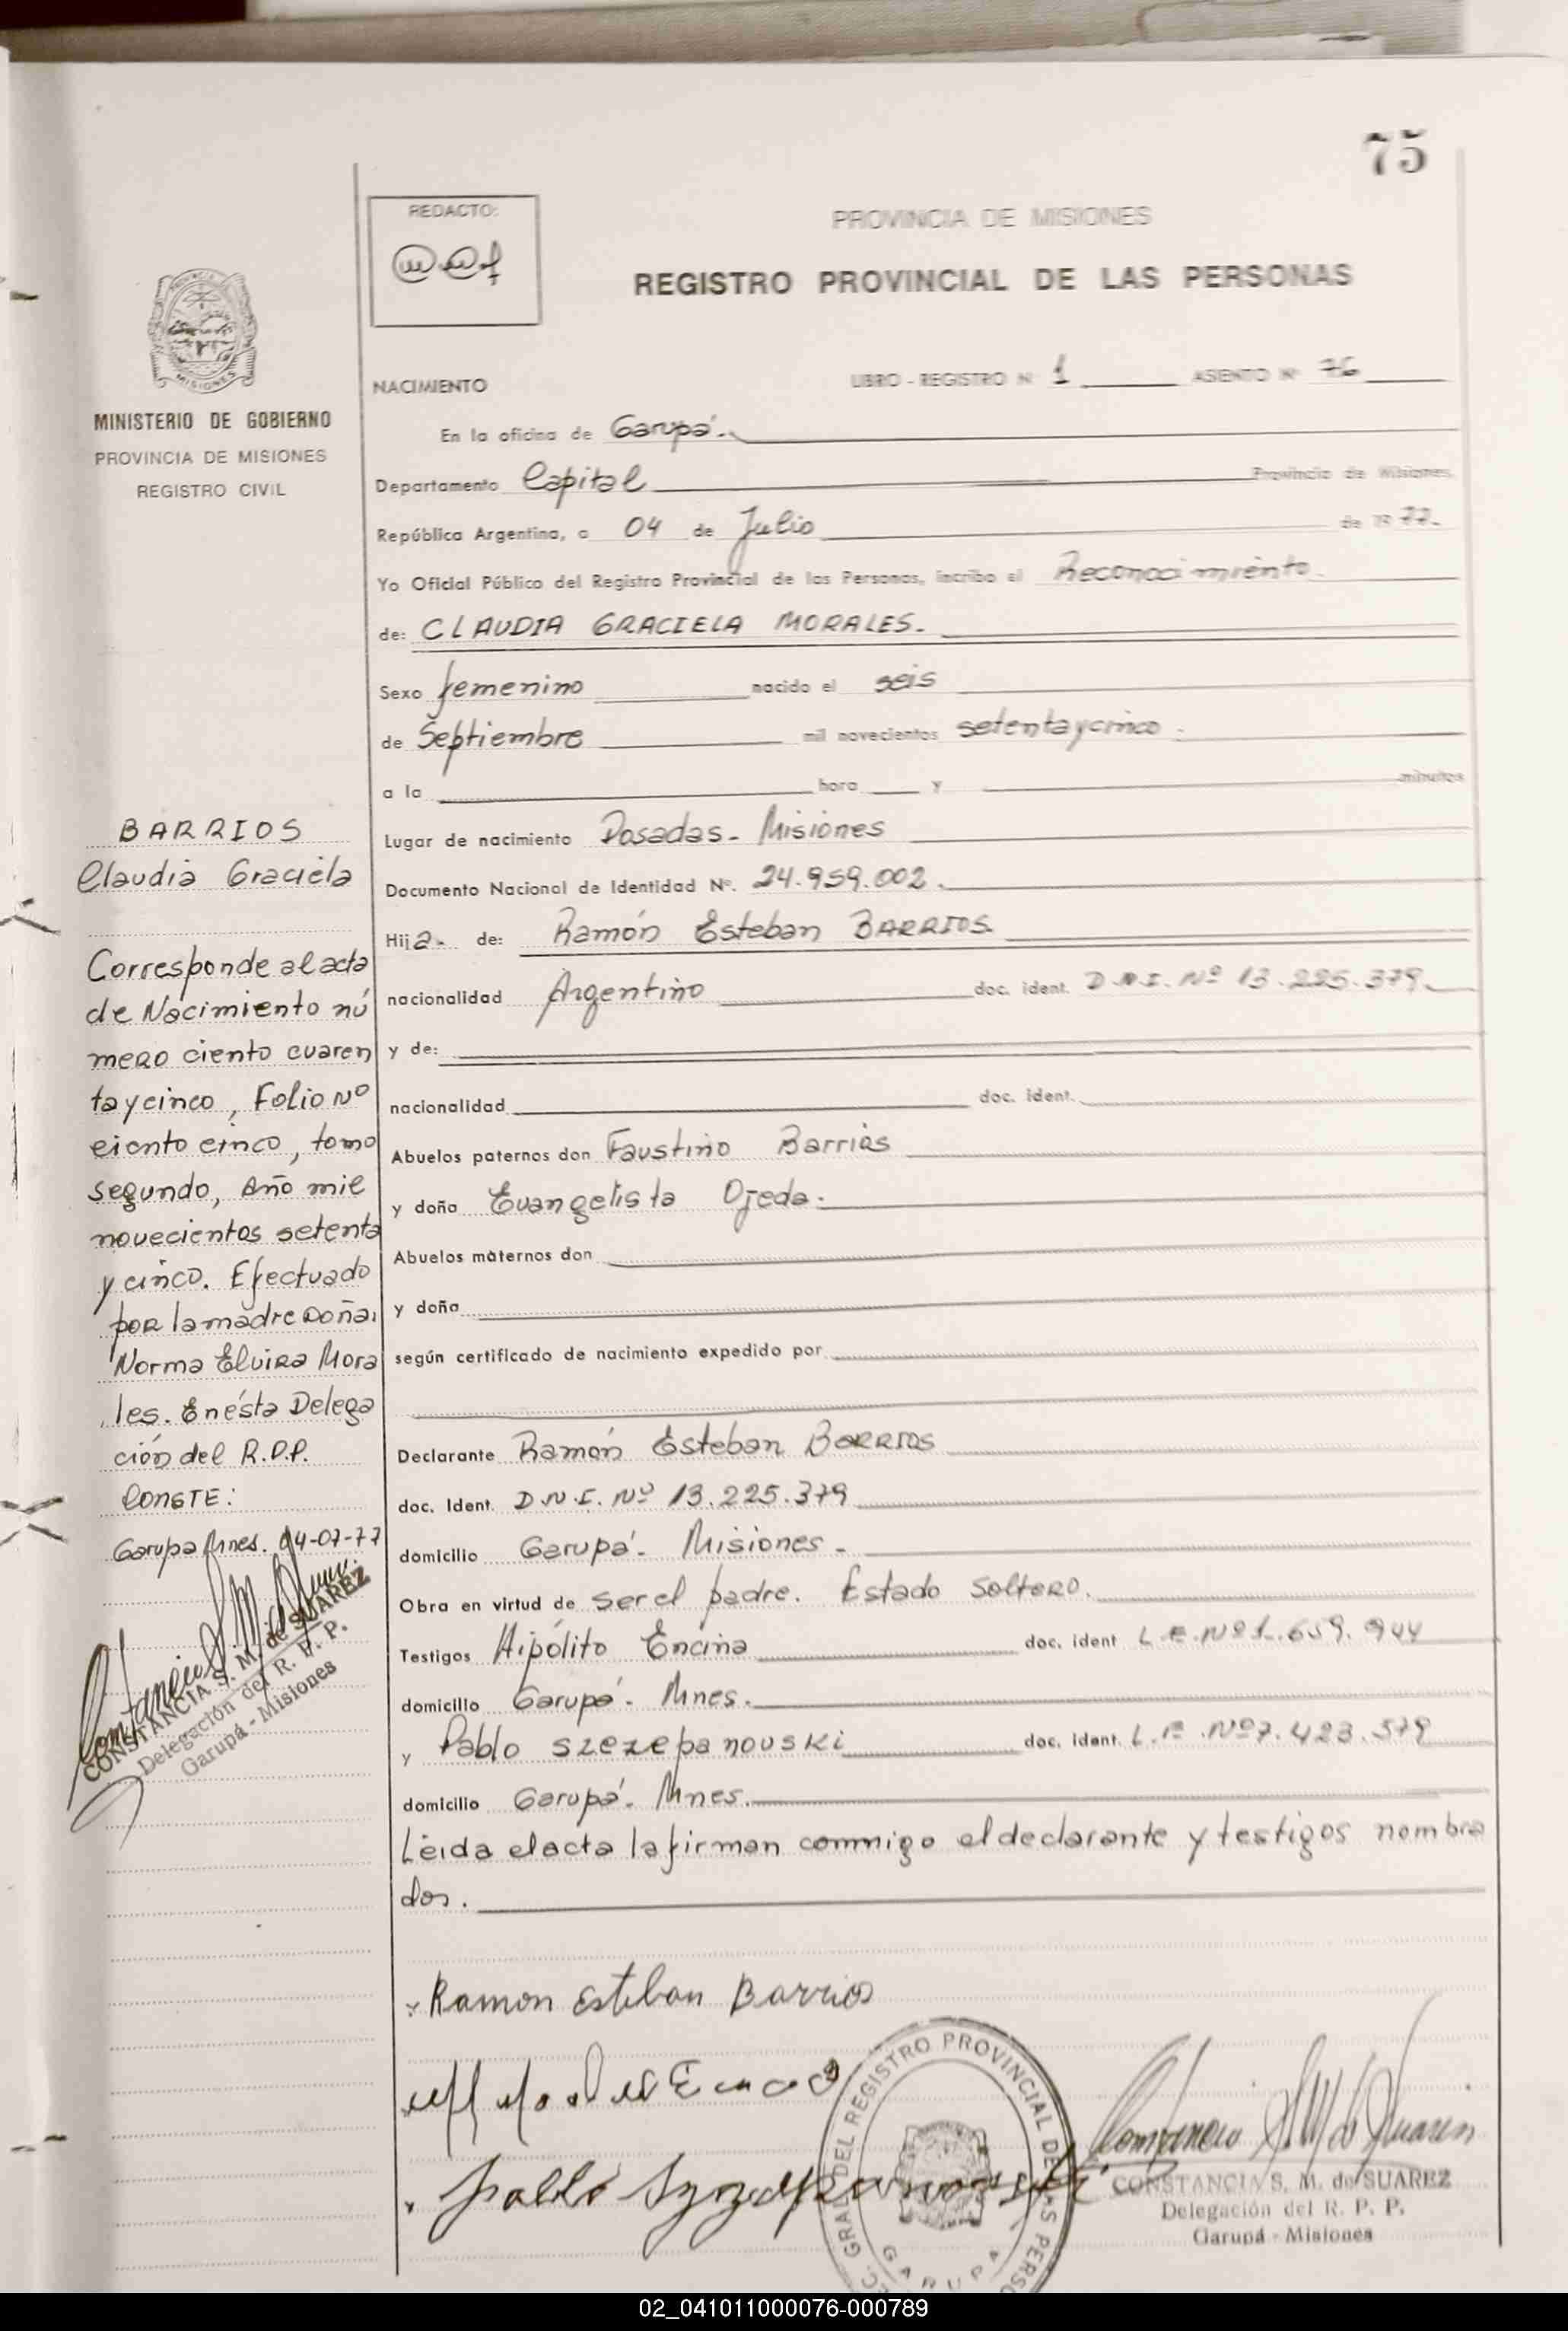 75
REDACTO:
PROVINCIA DE MISIONES
REGISTRO PROVINCIAL DE LAS PERSONAS
MISIONES
MINISTERIO DE GOBIERNO
PROVINCIA DE MISIONES
REGISTRO CIVIL
NACIMIENTO LIBRO - REGISTRO Nº 1 ASIENTO Nº 76
En la oficina de Garupá.
Departamento Capital Provincia de Misiones.
República Argentina, a 04 de Julio de 1977.
Yo Oficial Público del Registro Provincial de las Personas, incribo el Reconocimiento.
de: CLAUDIA GRACIELA MORALES.
Sexo femenino nacido el seis
de Septiembre mil novecientos setentaycinco.
a la hora y minutos
Lugar de nacimiento Posadas - Misiones
Documento Nacional de Identidad Nº. 24.959.002.
Hija. de: Ramón Esteban BARRIOS.
nacionalidad Argentino doc. ident. D.N.I. Nº 13.225.379.
y de:
nacionalidad doc. ident.
Abuelos paternos don Faustino Barrios
y doña Evangelista Ojeda.
Abuelos maternos don
y doña
según certificado de nacimiento expedido por
Declarante Ramón Esteban BARRIOS
doc. Ident. D.N.I. Nº 13.225.379
domicilio Garupá - Misiones -
Obra en virtud de ser el padre. Estado Soltero.
Testigos Hipólito Encina doc. ident L.E. Nº 1.659.944
domicilio Garupá - Mnes.
y Pablo Szezepanouski doc. ident. L.E. Nº 7.423.579
domicilio Garupá - Mnes.
Leida el acta la firman conmigo el declarante y testigos nombra
dos.
BARRIOS
Claudia Graciela
Corresponde al acta
de Nacimiento nú
mero ciento cuaren
taycinco, Folio Nº
ciento cinco, tomo
segundo, Año mil
novecientos setenta
y cinco. Efectuado
por la madre Doña.
Norma Elvira Mora
les. En ésta Delega
ción del R.P.P.
CONSTE:
Garupa Mnes. 04-07-77
CONSTANCIA S. M. de SUAREZ
Delegación del R. P. P.
Garupá - Misiones
Ramon Esteban Barrios
GRAL DEL REGISTRO PROVINCIAL DE LAS PERSO
GARUPA
CONSTANCIA S. M. de SUAREZ
Delegación del R. P. P.
Garupá - Misiones
02_041011000076-000789